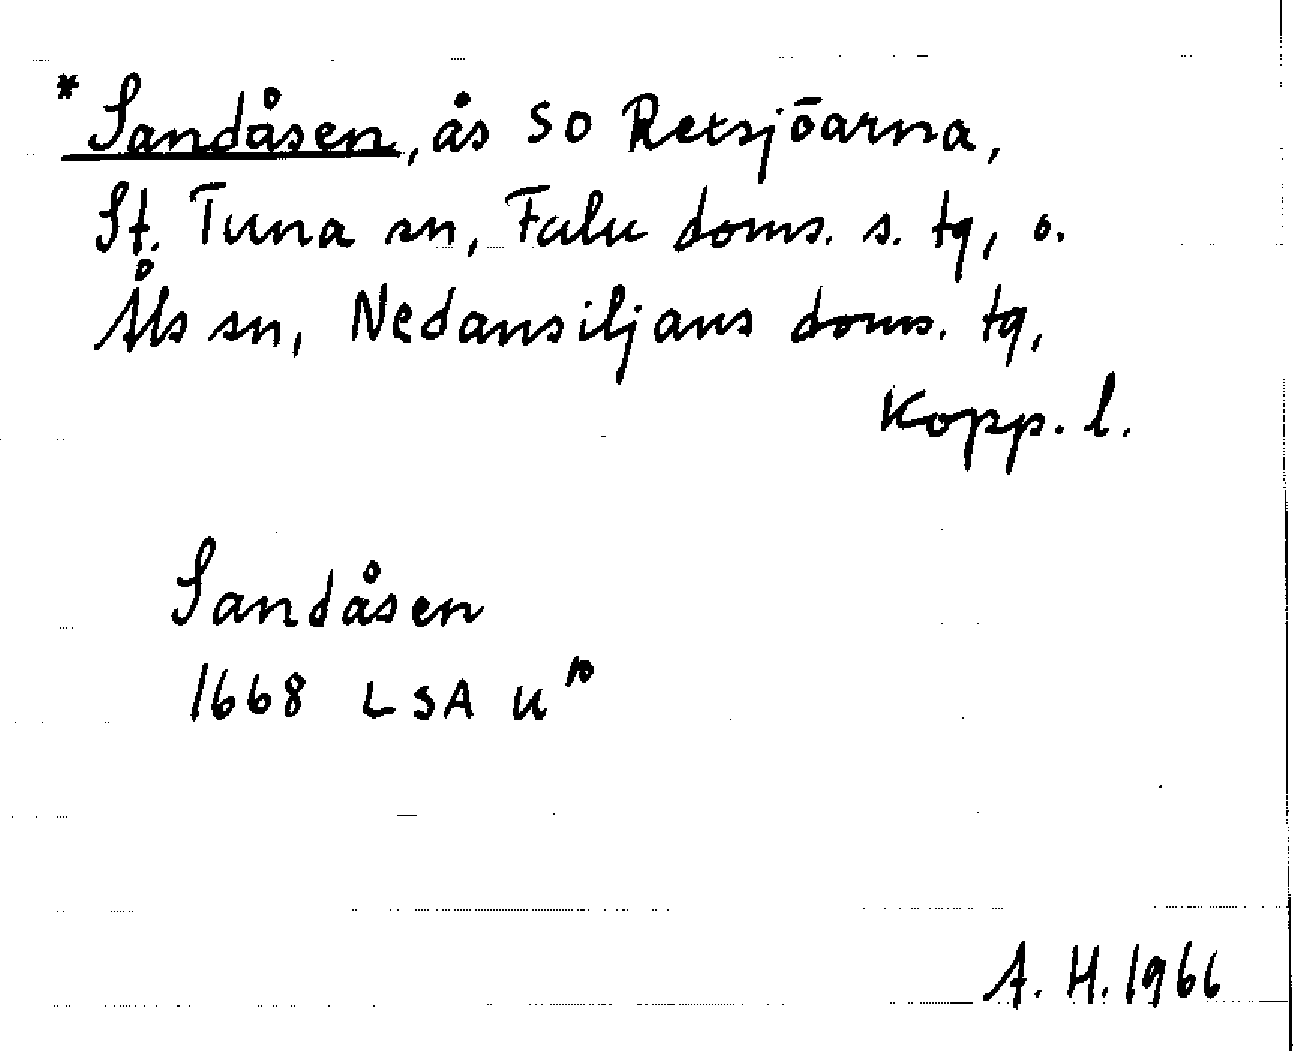 * Sandåsen, ås SO Retsjöarna,
St. Tuna sn, Falu doms. s. tg, o.
Åls sn, Nedansiljans doms. tg,
Kopp. l.
Sandåsen
1668 LSA U¹⁰
A. H. 1966